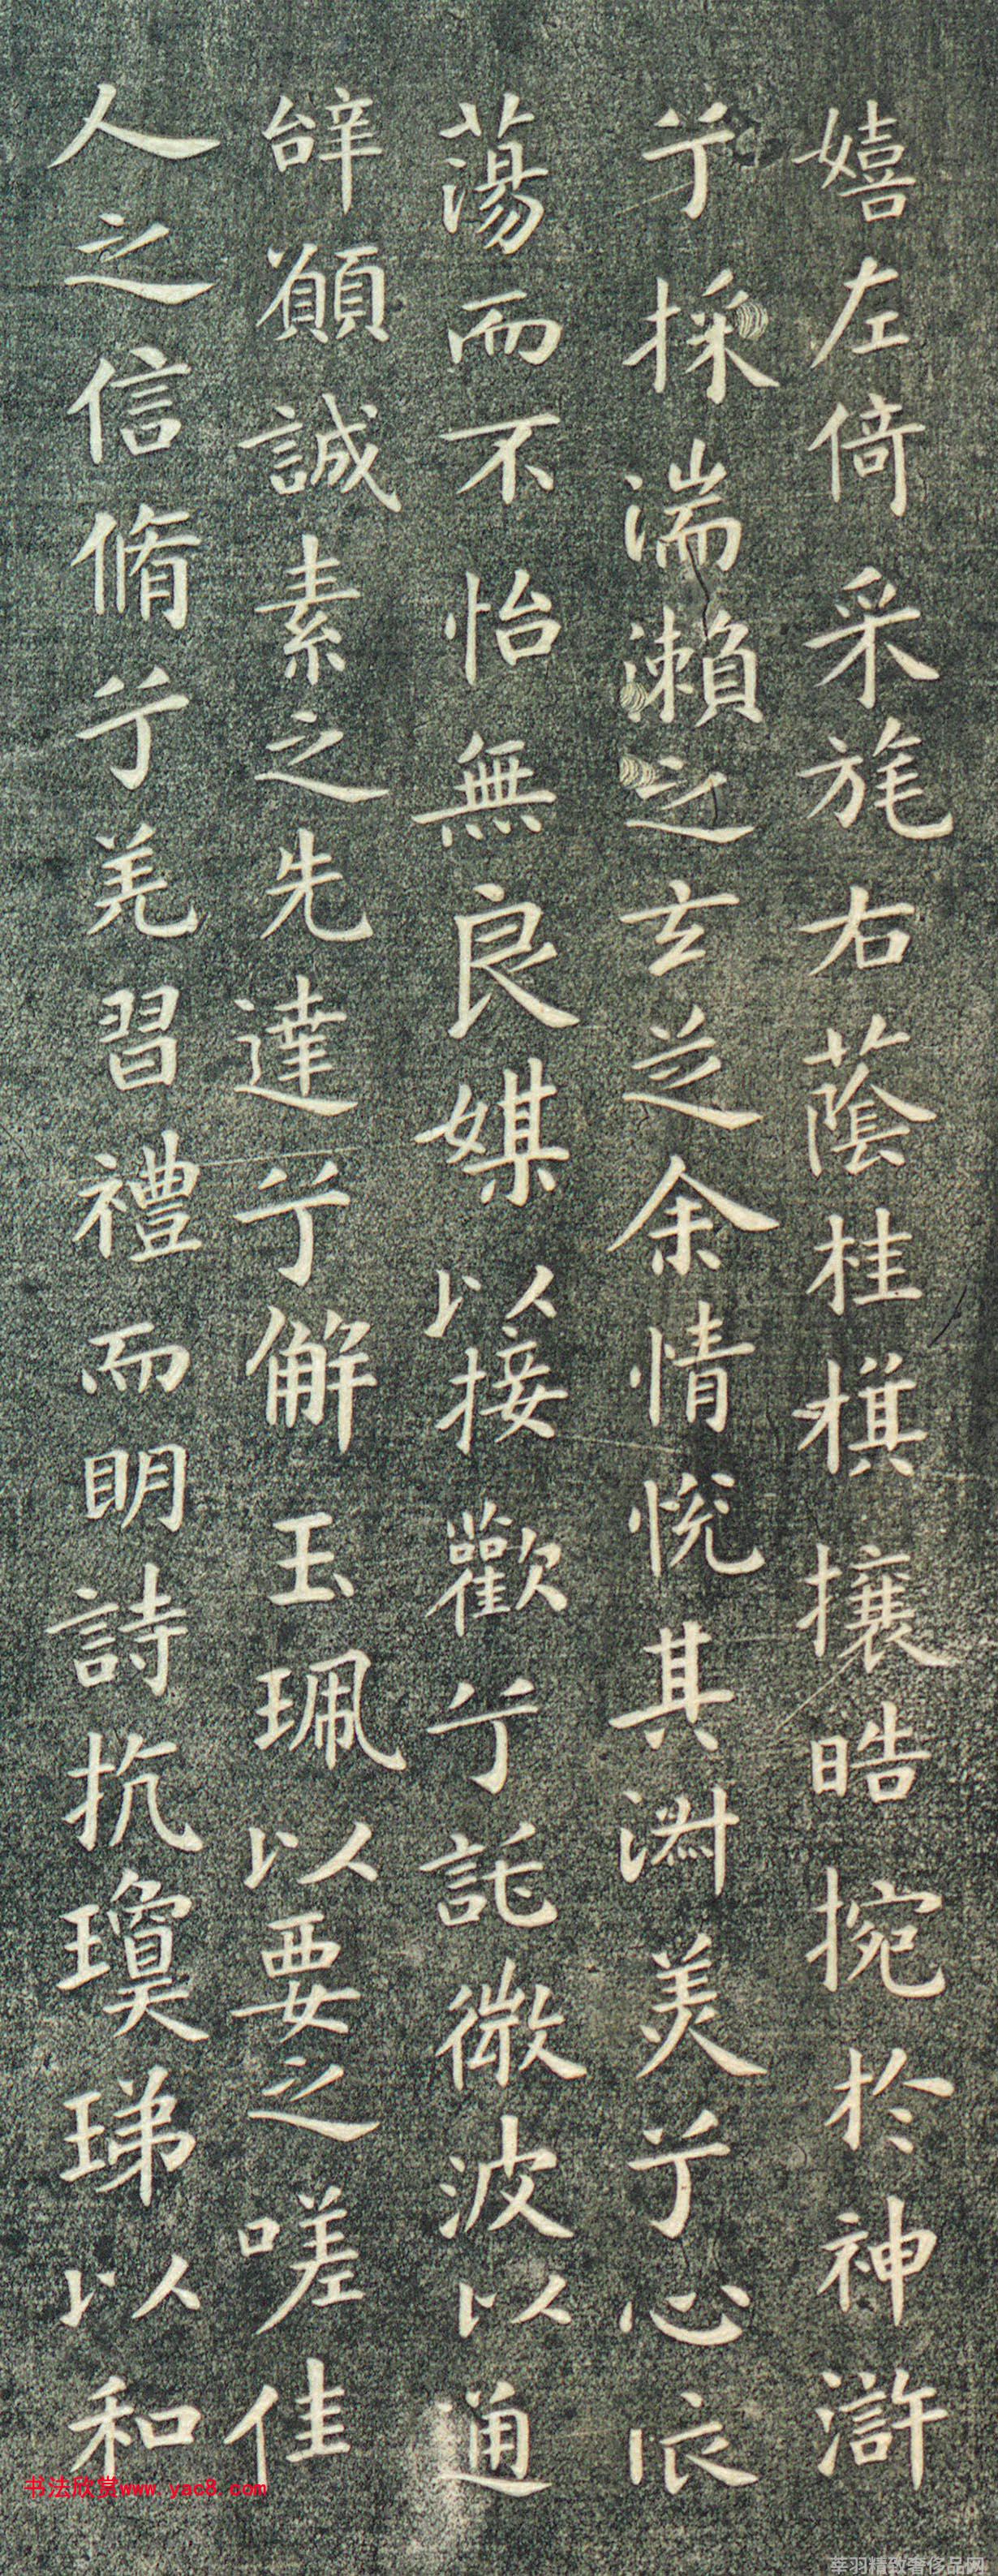 嬉左倚采旄右蔭桂棋攘皓捥於神滸
兮採湍瀬之玄芝余情悅其淵美兮心依
蕩而不怡無良媒以接歡兮託微波以通
辝願誠素之先達兮解玉珮以要之嗟佳
人之信脩兮羌習禮而明詩抗瓊珶以和
书法欣赏www.yac8.com
莘羽精致奢侈品网